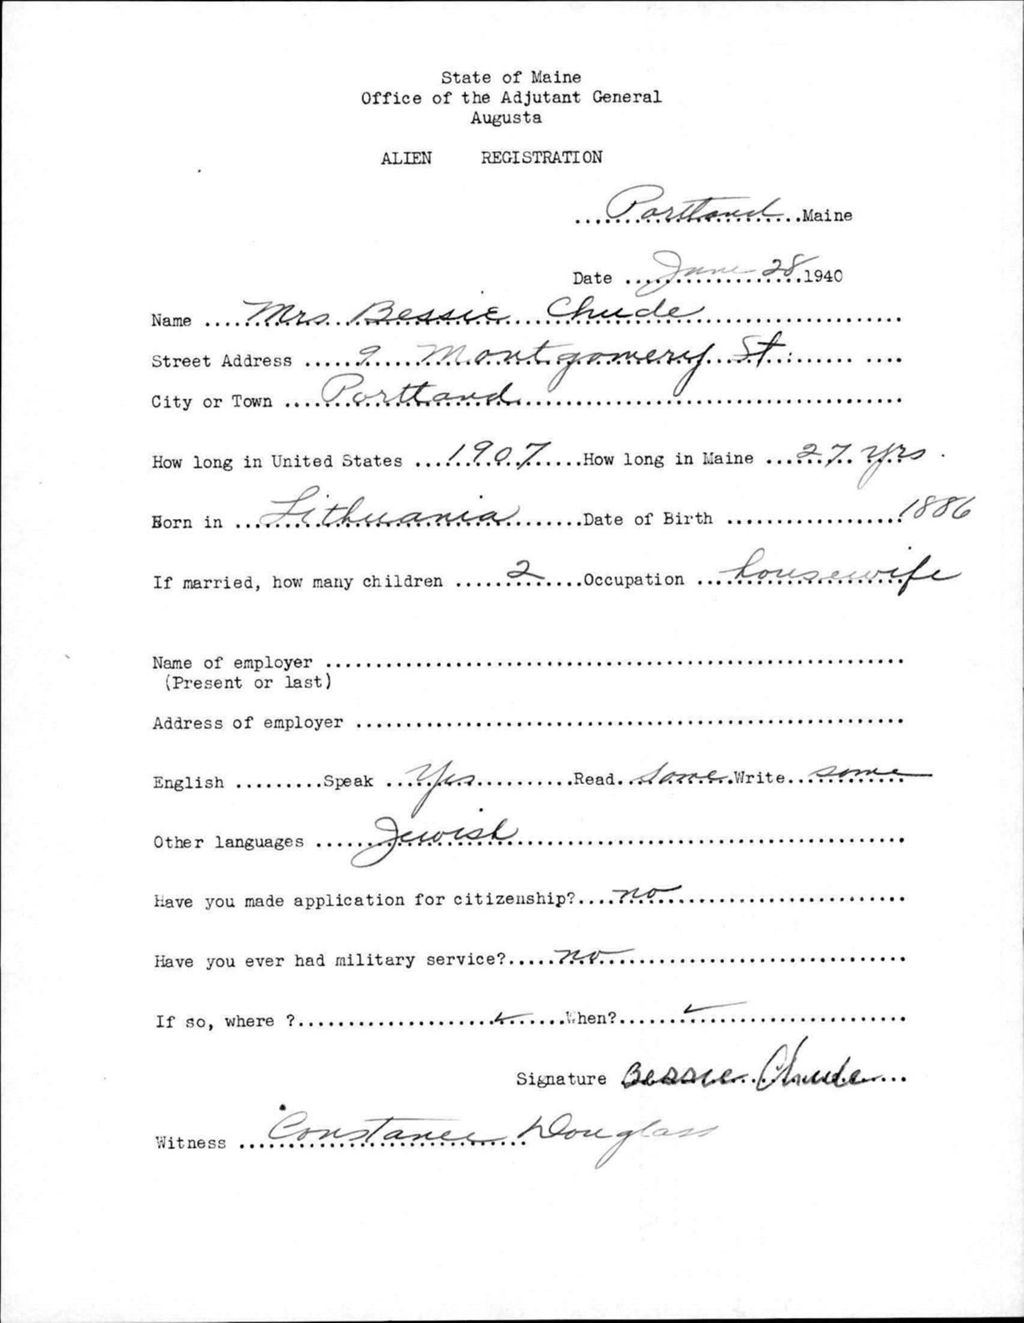 State of Maine
Office of the Adjutant General
Augusta
ALIEN REGISTRATION
Portland Maine
Date June 28 1940
Name Mrs Bessie Chude
Street Address 9 Montgomery St.
City or Town Portland
How long in United States 1907 How long in Maine 27 yrs.
Born in Lithuania Date of Birth 1886
If married, how many children 2 Occupation housewife
Name of employer
(Present or last)
Address of employer
English Speak Yes Read Some Write some
Other languages Jewish
Have you made application for citizenship? no
Have you ever had military service? no
If so, where ? When?
Signature Bessie Chude
Witness Constance Douglass